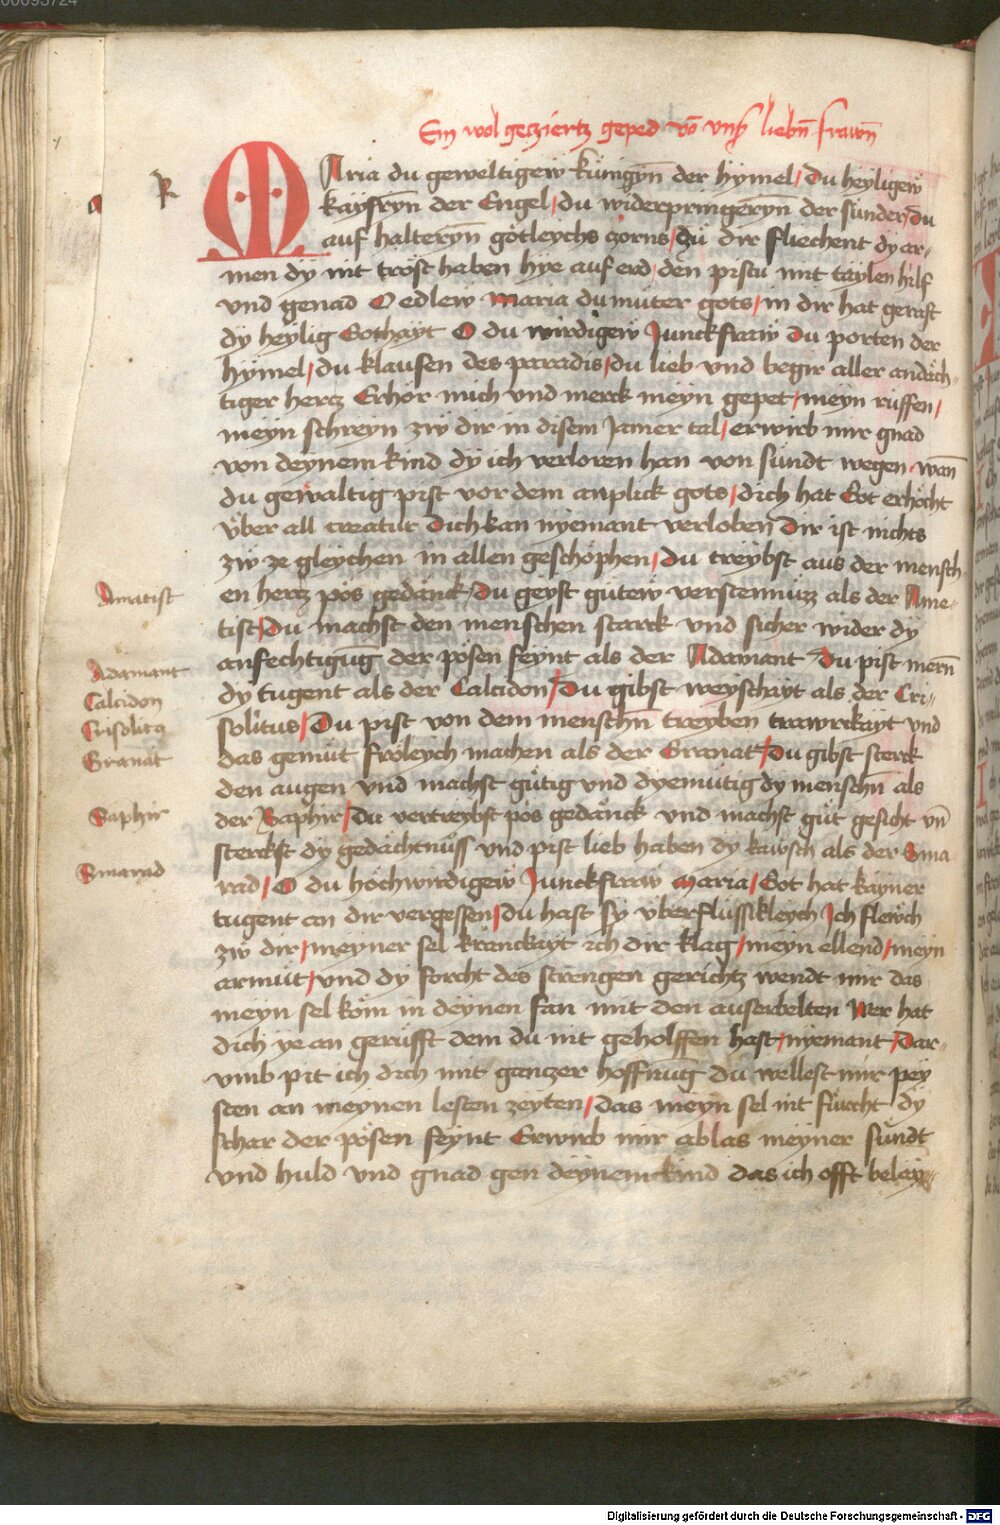 00093724
Ein wol geczierts geped vō vnß liebn̄ frawn̄
MAria du geweltigew künigyn̄ der hymel / Du heyligew
kaysryn̄ der Engel / du widerpringeryn̄ der sünder / du
auf halteryn̄ götleychs zorns / zü dir fliechent dy ar-
men dy nit trost haben hye auf erd / den pistu mit taylen hilf
vnd genad O edlew Maria du müter gots / in dir hat gerast
dy heylig Gothayt O du wirdigew Junckfraw Du porten der
hymel / du klausen des paradis / du lieb vnd begir aller andäch-
tiger hercz Erhör mich vnd merck meyn gepet / meyn rüffen /
meyn schreyn zw dir in disem Jamer tal / erwirb mir gnad
von deynem kind dy ich verloren han von sündt wegen wan̄
du gewaltig pist vor dem anplick gots / dich hat Got erhöcht
über all creatur Dich kan nyemant verloben Dir ist nichts
zw ze gleychen in allen geschöphen / du treybst aus der mensch
en hertz pös gedänck / Du geyst gütew verstennüzz als der Ame-
tist / Du machst den menschen starck vnd sicher wider dy
anfechtigūg der pösen feynt als der Adamant Du pist mern̄
dy tugent als der Calcidon / Du gibst weyschayt als der Cri-
solitus / Du pist von dem menschn̄ treyben trawrckayt vnd
das gemüt fröleych machen als der Granat / Du gibst sterck
den augen vnd machst gütig vnd dyemütig dy menschn̄ als
der Saphir / Du vertreybst pös gedänck vnd machst güt gesicht vn̄
sterckst dy gedächtnüss vnd pist lieb haben dy kawsch als der Sma
rad / O du höchwirdigew Junckfraw Maria / Got hat kayner
tugent an dir vergessen / du hast sy überflüssikleych Ich flewch
zw dir / meyner sel kranckayt ich dir klag / meyn ellend / meyn
armüt / vnd dy forcht des strengen gerichtz wendt mir das
meyn sel köm in deynen fan mit den auserbelten Wer hat
dich ye an gerüfft dem du nit geholffen hast / nyemant / Dar-
vmb pit ich dich mit ganczer hoffnūg du wellest mir pey
sten an meynen lesten zeyten / das meyn sel nit fürcht dy
schar der pösen feynt Erwirb mir ablas meyner sündt
vnd huld vnd gnad gen deynem kind das ich offt belay-
Amatist
Adamant
Calcidon
Crisolitg
Granat
Saphir
Smarad
Digitalisierung gefördert durch die Deutsche Forschungsgemeinschaft - DFG